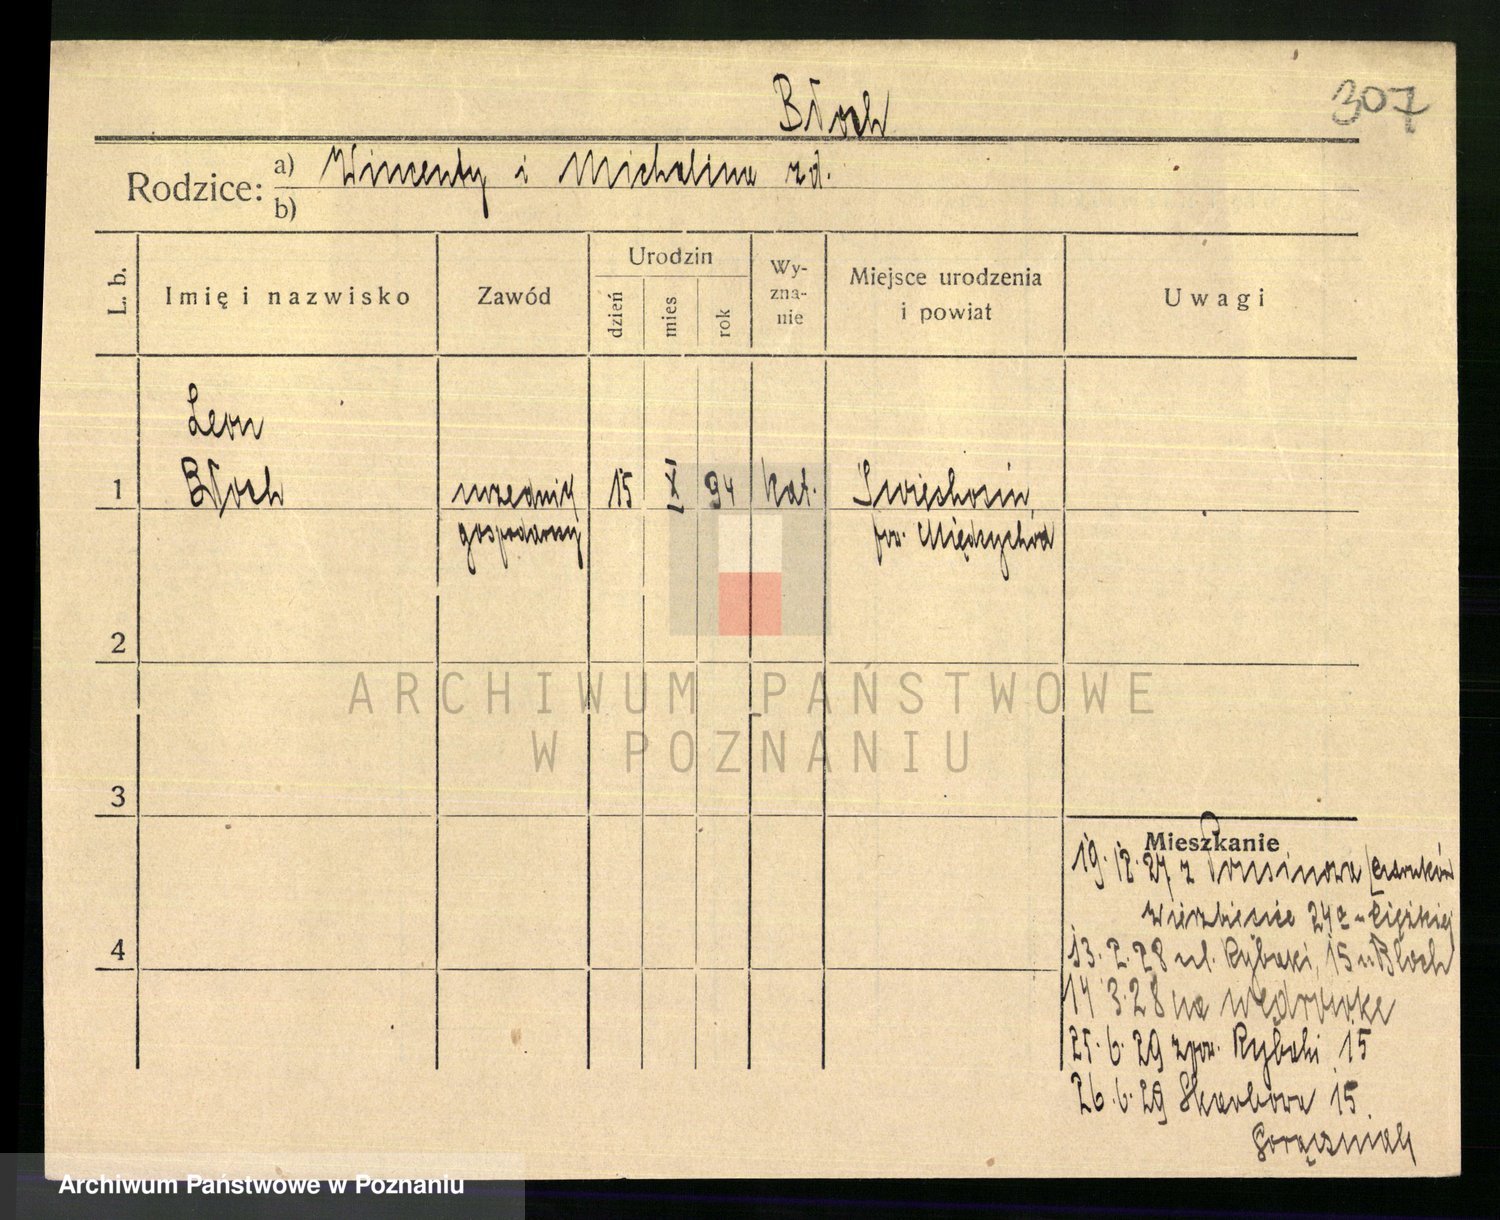 307
Błoch
Rodzice: a) Wincenty i Michalina zd.
b)
L. b.
Imię i nazwisko
Zawód
Urodzin
dzień
mies
rok
Wy-
zna-
nie
Miejsce urodzenia
i powiat
Uwagi
Leon
1 Błoch urzednik 15 X 94 kat.
gospodarczy pow. Międzychód
2
ARCHIWUM PAŃSTWOWE
W POZNANIU
3
Mieszkanie
19.12.27 z
Wierzbięcice 24a u
4
13.2.28 ul. Rybaki 15 u Błoch
14 3.28 na wędrówkę
25.6.29 zpow. Rybaki 15
26.6.29 Skarbowa 15
Archiwum Państwowe w Poznaniu